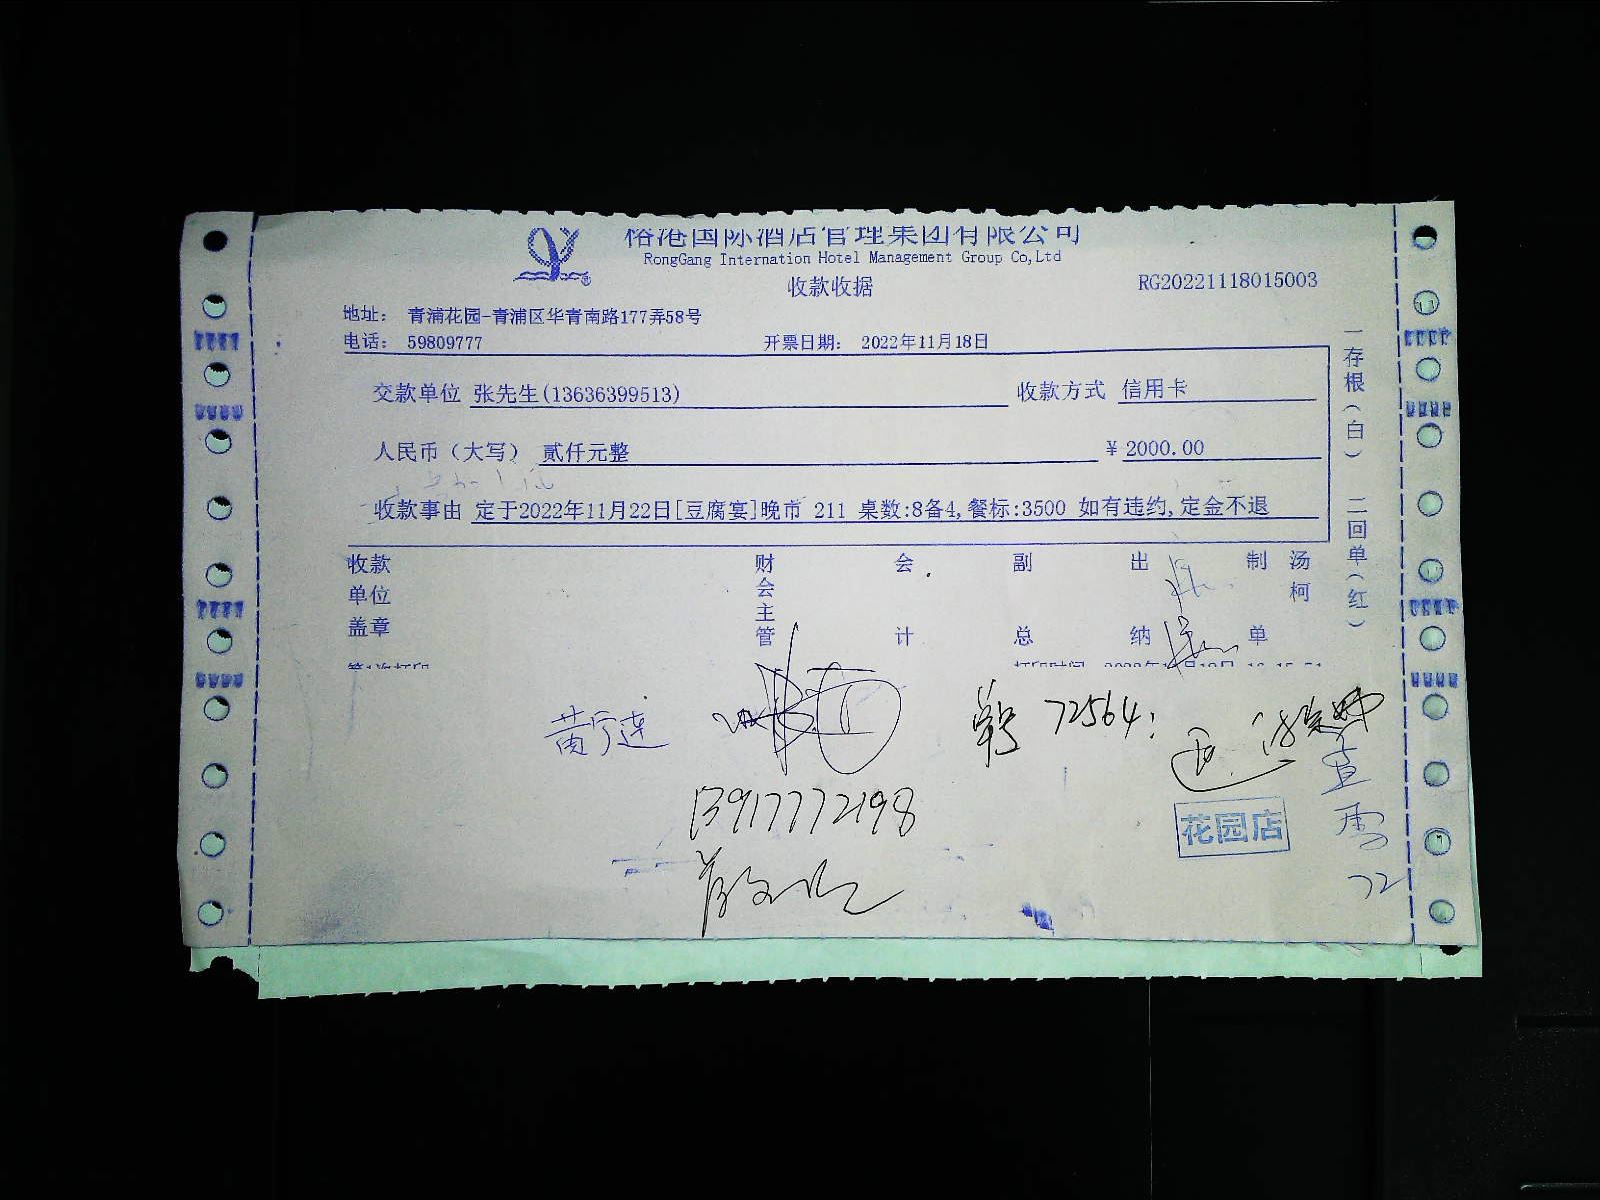 裕港国际酒店管理集团有限公司
RongGang Internation Hotel Management Group Co,Ltd
收款收据
RG20221118015003
地址： 青浦花园-青浦区华青南路177弄58号
电话： 59809777 开票日期： 2022年11月18日
交款单位 张先生(13636399513) 收款方式 信用卡
人民币（大写） 贰仟元整 ￥2000.00
收款事由 定于2022年11月22日[豆腐宴]晚市 211 桌数:8备4,餐标:3500 如有违约,定金不退
一存根（白） 二回单（红）
收款单位盖章 财会主管 会计 副总 出纳 制单 汤柯
黄宁莲
单号 72564
13917772198
花园店
72